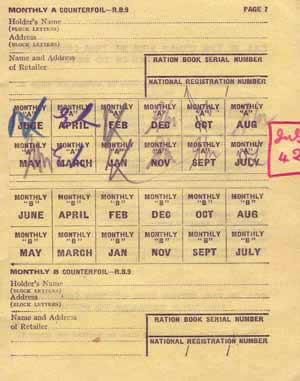 MONTHLY A COUNTERFOIL—R.B.9 PAGE 7
Holder's Name
(BLOCK LETTERS)
Address
(BLOCK LETTERS)
Name and Address
of Retailer
RATION BOOK SERIAL NUMBER
NATIONAL REGISTRATION NUMBER
MONTHLY MONTHLY MONTHLY MONTHLY MONTHLY MONTHLY
"A" "A" "A" "A" "A" "A"
JUNE APRIL FEB DEC OCT AUG
MONTHLY MONTHLY MONTHLY MONTHLY MONTHLY MONTHLY
"A" "A" "A" "A" "A" "A"
MAY MARCH JAN NOV SEPT JULY
42
MONTHLY MONTHLY MONTHLY MONTHLY MONTHLY MONTHLY
"B" "B" "B" "B" "B" "B"
JUNE APRIL FEB DEC OCT AUG
MONTHLY MONTHLY MONTHLY MONTHLY MONTHLY MONTHLY
"B" "B" "B" "B" "B" "B"
MAY MARCH JAN NOV SEPT JULY
MONTHLY B COUNTERFOIL—R.B.9
Holder's Name
(BLOCK LETTERS)
Address
(BLOCK LETTERS)
Name and Address
of Retailer
RATION BOOK SERIAL NUMBER
NATIONAL REGISTRATION NUMBER